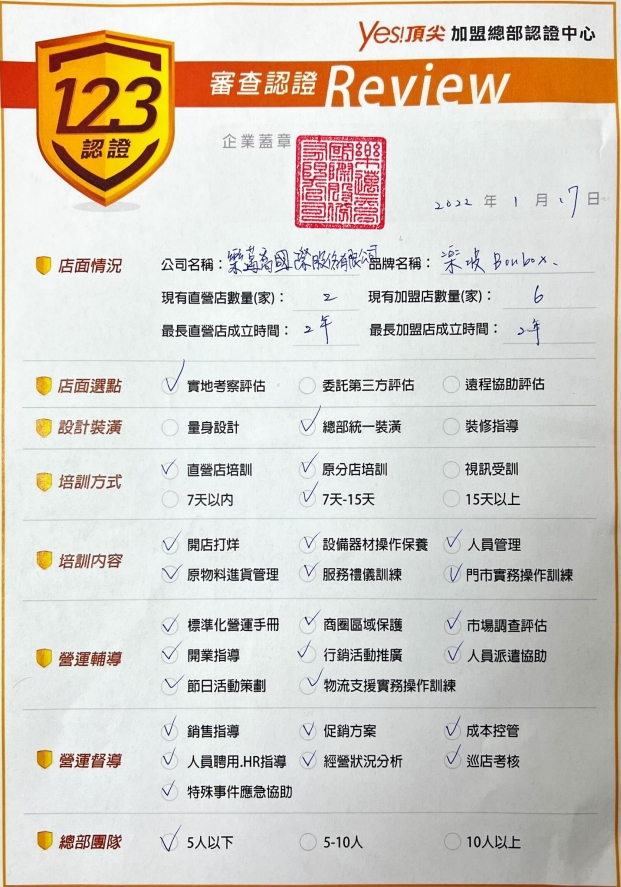 Yes!頂尖 加盟總部認證中心
123
認證
審查認證 Review
企業蓋章
2022 年 1 月 17 日
店面情況
公司名稱： 樂邁高國際股份有限公司 品牌名稱： 楽坡 Bonbox.
現有直營店數量(家)： 2 現有加盟店數量(家)： 6
最長直營店成立時間： 2年 最長加盟店成立時間： 2年
店面選點 ✓ 實地考察評估 委託第三方評估 遠程協助評估
設計裝潢 量身設計 ✓ 總部統一裝潢 裝修指導
培訓方式 ✓ 直營店培訓 ✓ 原分店培訓 視訊受訓
7天以內 ✓ 7天-15天 15天以上
培訓內容 ✓ 開店打烊 ✓ 設備器材操作保養 ✓ 人員管理
✓ 原物料進貨管理 ✓ 服務禮儀訓練 ✓ 門市實務操作訓練
營運輔導 ✓ 標準化營運手冊 ✓ 商圈區域保護 ✓ 市場調查評估
✓ 開業指導 ✓ 行銷活動推廣 ✓ 人員派遣協助
✓ 節日活動策劃 ✓ 物流支援實務操作訓練
營運督導 ✓ 銷售指導 ✓ 促銷方案 ✓ 成本控管
✓ 人員聘用.HR指導 ✓ 經營狀況分析 ✓ 巡店考核
✓ 特殊事件應急協助
總部團隊 ✓ 5人以下 5-10人 10人以上